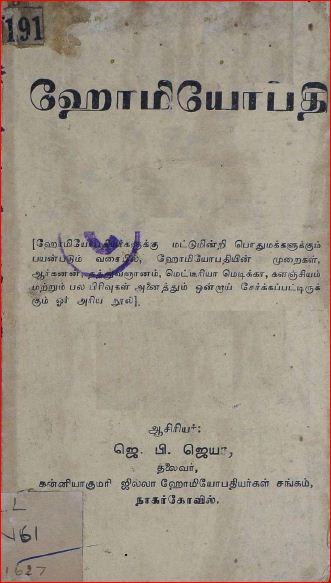 191
ஹோமியோபதி
[ஹோமியோபதியர்களுக்கு மட்டுமின்றி பொதுமக்களுக்கும்
பயன்படும் வகையில், ஹோமியோபதியின் முறைகள்,
ஆர்கனன், தத்துவஞானம், மெட்டீரியா மெடிக்கா, களஞ்சியம்
மற்றும் பல பிரிவுகள் அனைத்தும் ஒன்றாய் சேர்க்கப்பட்டிருக்
கும் ஓர் அரிய நூல்].
ஆசிரியர்:
ஜெ. பி. ஜெயா,
தலைவர்,
கன்னியாகுமரி ஜில்லா ஹோமியோபதியர்கள் சங்கம்,
நாகர்கோவில்.
L
N61
1627